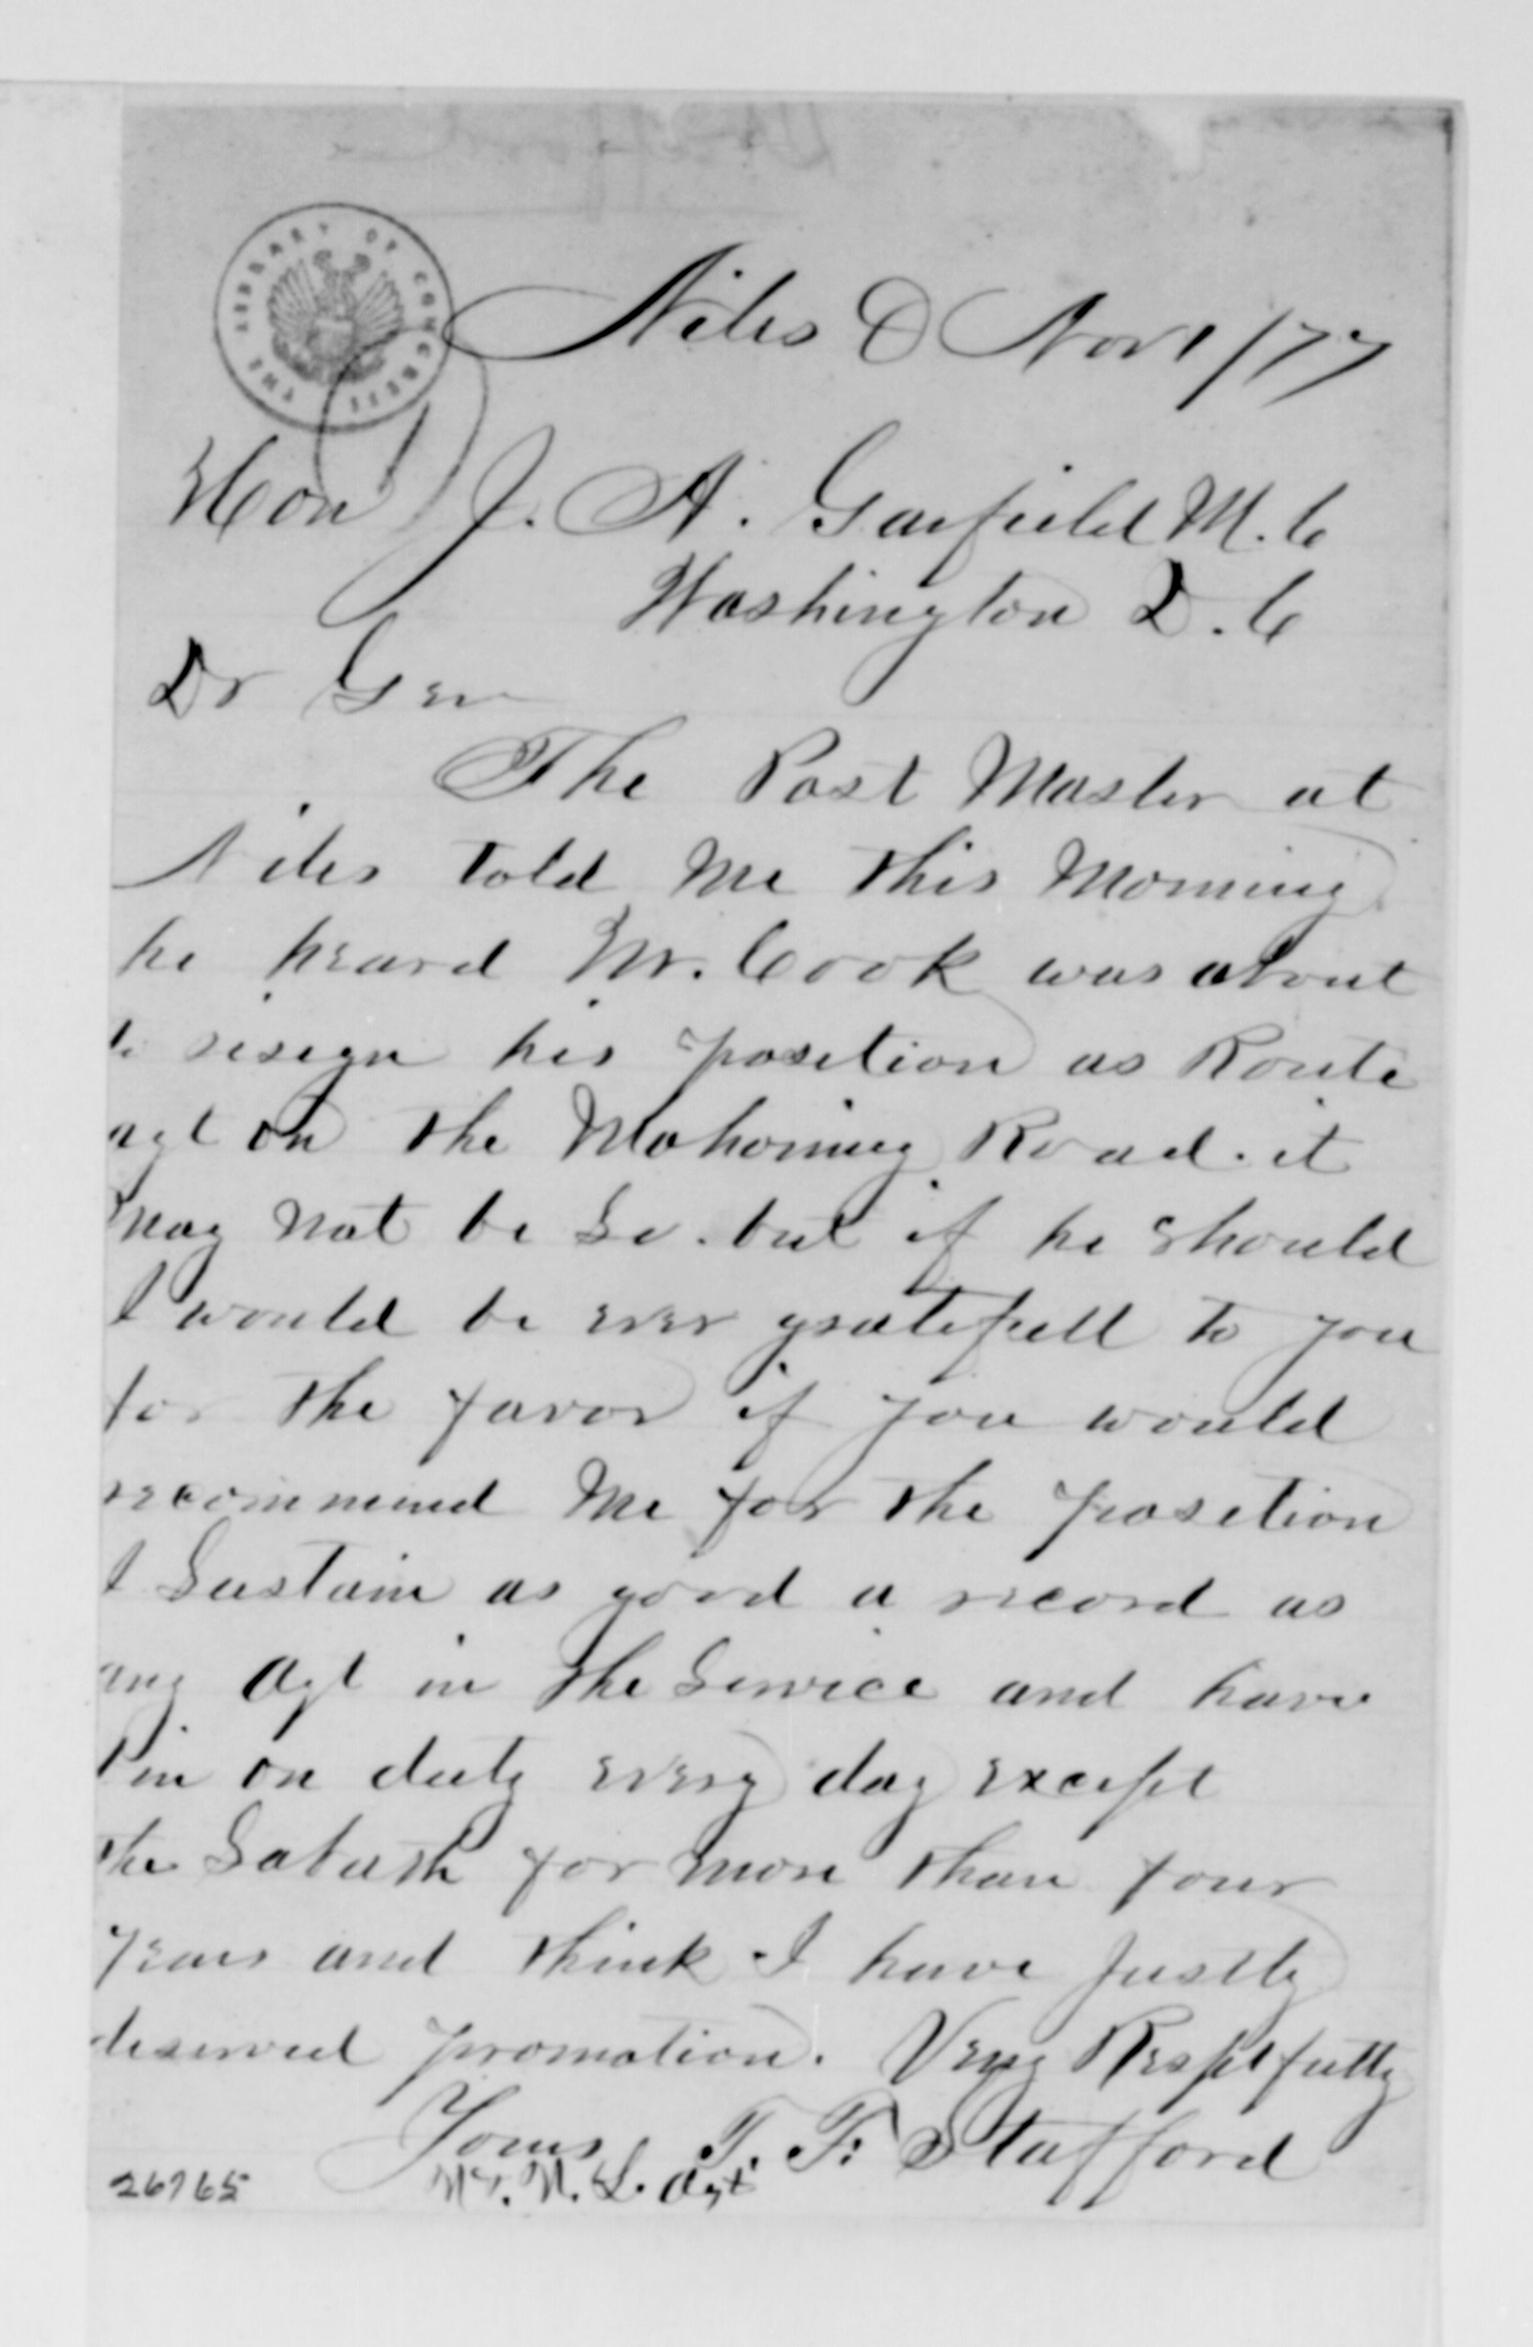 THE LIBRARY OF CONGRESS
Niles O Nov 1/77
Hon J. A. Garfield M. C
Washington D. C
Dr Gen
The Post Master at
Niles told Me this Morning
he heard Mr. Cook was about
to resign his position as Route
agt on the Mahoning Road. it
may not be So. but if he Should
I would be ever gratefull to you
for the favor if you would
recommend Me for the position
I Sustain as good a record as
any Agt in the Service and have
bin on duty every day except
the Sabath for more than four
years and think I have Justly
deserved promotion. Very Resptfully
Yours, T. F. Stafford
M. L. Agt
26765